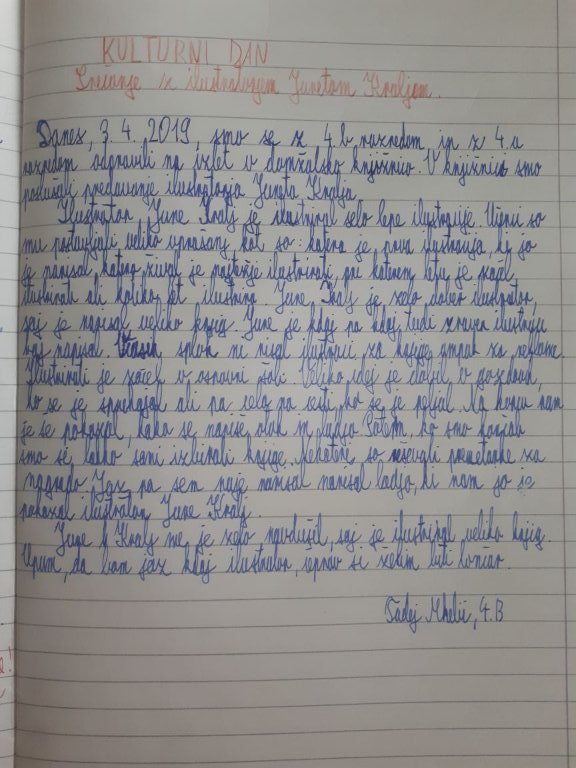 KULTURNI DAN
Srečanje z ilustratorjem Juretom Kraljom.
Danes, 3. 4. 2019, smo se z 4.b razredom in z 4.a
razredom odpravili na izlet v domžalsko knjižnico. V knjižnici smo
poslušali predavanje ilustratorja Jureta Kralja.
Ilustrator Jure Kralj je ilustriral zelo lepe ilustracije. Učenci so
mu postavljali veliko vprašanj kot so: katera je prva ilustracija, ki jo
je narisal, katero žival je najtežje ilustrirati, pri katerem letu je začel
ilustrirati ali koliko let ilustrira. Jure Kralj je zelo dober ilustrator,
saj je narisal veliko knjig. Jure je kdaj pa kdaj tudi zraven ilustracij
kaj napisal. sploh ni risal ilustracij za knjige ampak za reklame.
Ilustrirati je začel v osnovni šoli. Veliko idej je dobil v gozdovih,
ko se je sprehajal ali pa celo na cesti, ko se je peljal. Na koncu nam
je še pokazal, kako se nariše otok in ladjo. Potem, ko smo končali
smo si lahko sami izbirali knjige. Nekatere so reševali premetanke za
nagrado. Jaz pa sem raje narisal narisal ladjo, ki nam jo je
pokazal ilustrator Jure Kralj.
Jure Kralj me je zelo navdušil, saj je ilustriral veliko knjig.
Upam, da bom jaz kdaj ilustrator, čeprav si želim biti lončar.
Tadej 4.B